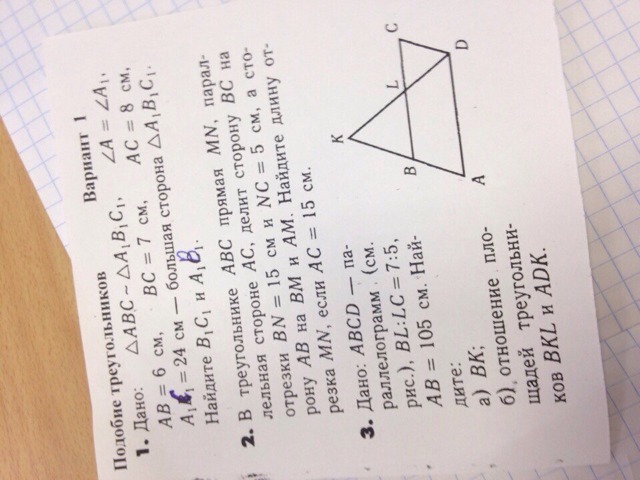 Подобие треугольников Вариант 1
1. Дано: △ABC ~ △A₁B₁C₁, ∠A = ∠A₁,
AB = 6 см, BC = 7 см, AC = 8 см,
A₁C₁ = 24 см — большая сторона △A₁B₁C₁.
Найдите B₁C₁ и A₁B₁.
2. В треугольнике ABC прямая MN, парал-
лельная стороне AC, делит сторону BC на
отрезки BN = 15 см и NC = 5 см, а сто-
рону AB на BM и AM. Найдите длину от-
резка MN, если AC = 15 см.
3. Дано: ABCD — па-
раллелограмм (см.
рис.), BL:LC = 7:5,
AB = 105 см. Най-
дите:
а) BK;
б) отношение пло-
щадей треугольни-
ков BKL и ADK.
K
B
L
C
A
D